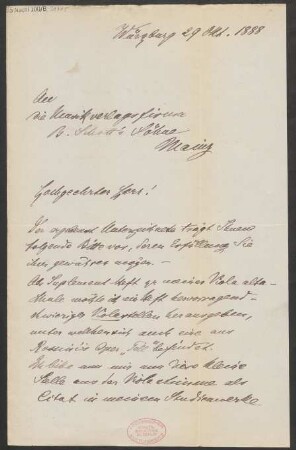 Würzburg 29 Okt. 1888
An
die Musikverlagsfirma
B. Schott's Söhne
Mainz
Hochgeehrter Herr!
Der ergebenst Unterzeichnete trägt Ihnen
folgende Bitte vor, deren Erfüllung Sie
ihm gewähren mögen. –
Als Supplement-Heft zu meiner Viola alta-
Schule möchte ich ein Heft hervorragend-
schwieriger Violastellen herausgeben,
unter welchen sich auch eine aus
Rossini's Oper „Tell" befindet.
Es liebe um mir nun diese kleine
Stelle aus der Violastimme als
Citat in meinem Studienwerke